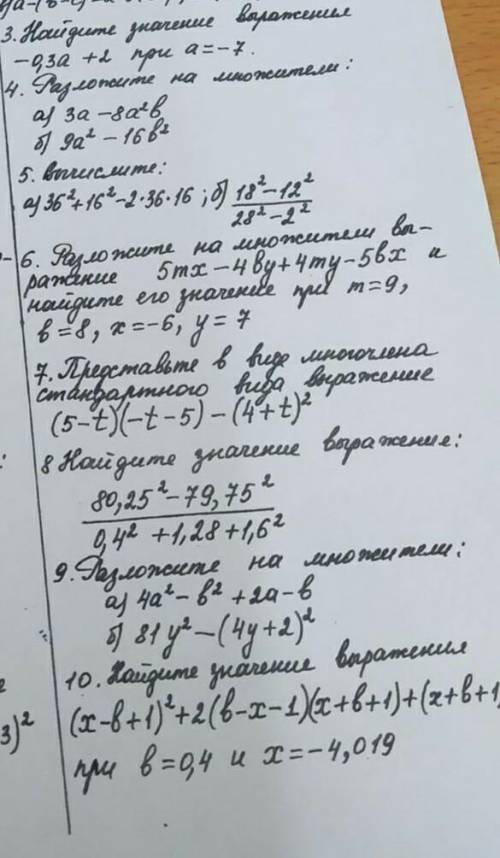 3. Найдите значение выражения
-0,3а +2 при а=-7.
4. Разложите на множители:
а) 3а - 8а²в
б) 9а² - 16в²
5. вычислите:
а) 36²+16²-2·36·16 ; б) (18²-12²)/(28²-2²)
6. Разложите на множители вы-
ражение 5mx-4вy+4my-5вx и
найдите его значение при m=9,
в=8, x=-6, y=7
7. Представьте в виде многочлена
стандартного вида выражение
(5-t)(-t-5)-(4+t)²
8 Найдите значение выражение:
80,25²-79,75²
0,4²+1,28+1,6²
9. Разложите на множители:
а) 4а²-в²+2а-в
б) 81y²-(4y+2)²
10. Найдите значение выражения
3)² (x-в+1)²+2(в-x-1)(x+в+1)+(x+в+1)
при в=0,4 и x=-4,019